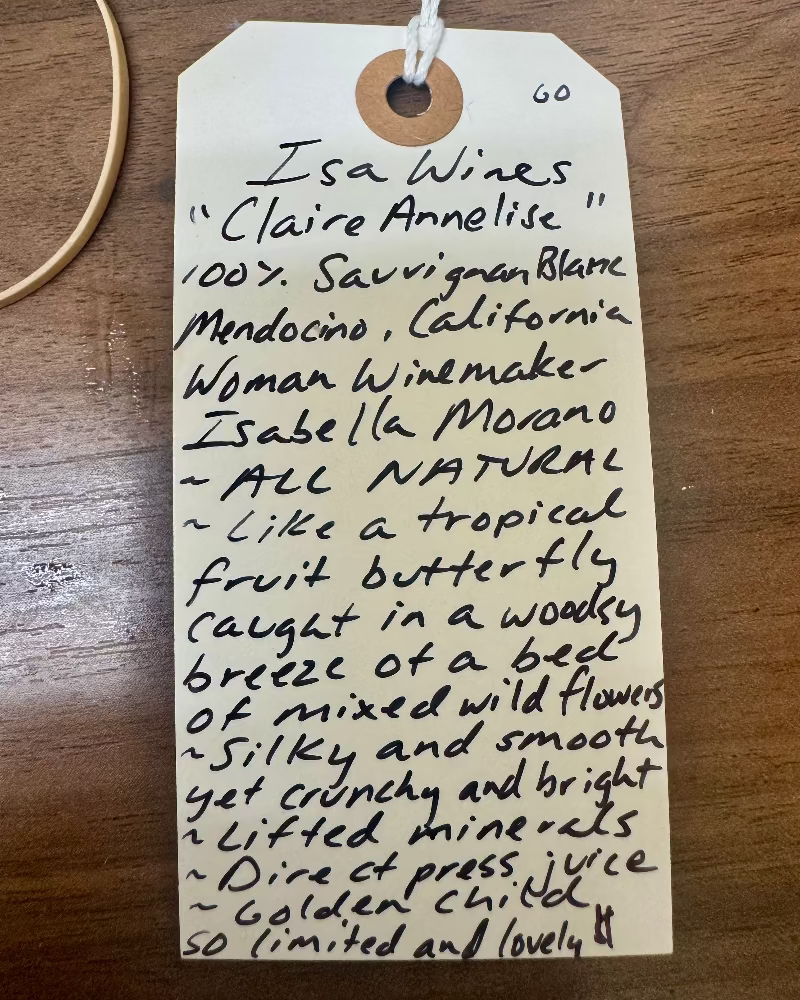 60
Isa Wines
"Claire Annelise"
100% Sauvignan Blanc
Mendocino, California
Woman Winemaker
Isabella Morano
~ ALL NATURAL
~ Like a tropical
fruit butterfly
caught in a woodsy
breeze of a bed
of mixed wild flowers
~ Silky and smooth
yet crunchy and bright
~ Lifted minerals
~ Direct press juice
~ Golden child
so limited and lovely!!